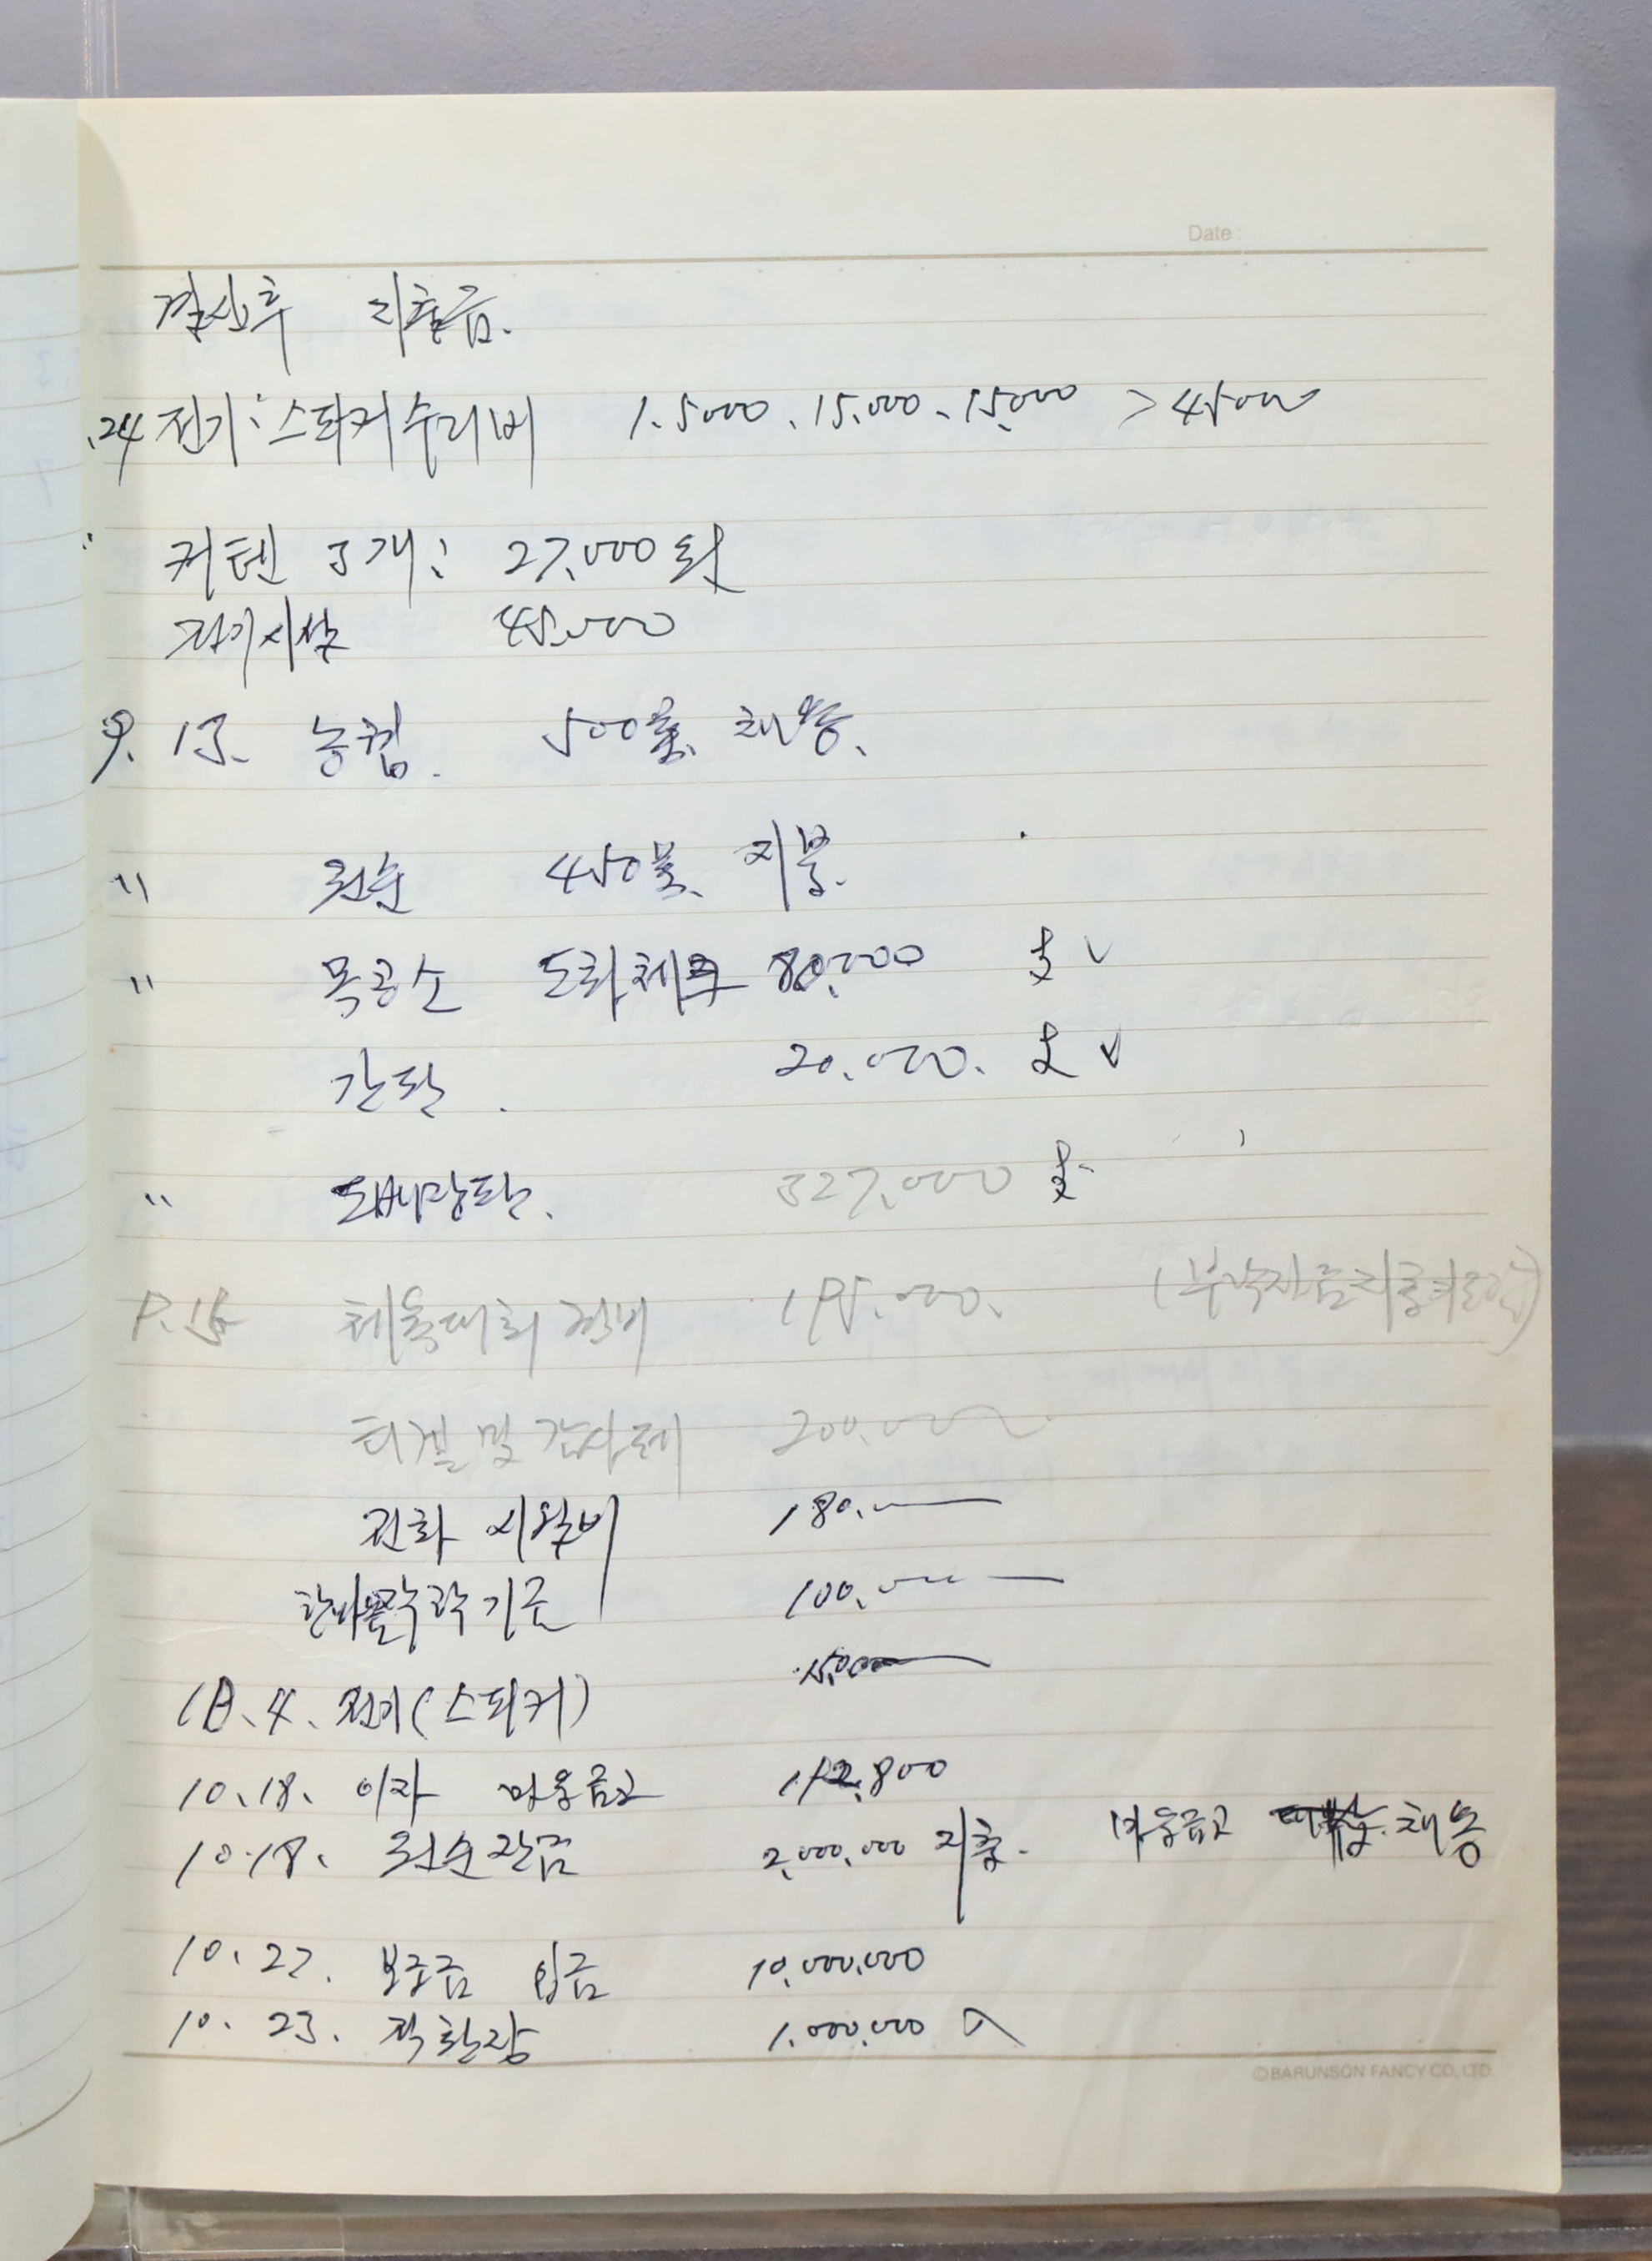 Date :
결산후 지출금.
.24 전기: 스피커수리비 15.000. 15.000. 15.000 > 45000
" 커텐 3개: 27,000원
전기시설 45.000
9. 13. 농협. 500불. 채용.
" 원순 450불. 지불.
" 목공소 도화체크 80.000 支 ✓
간판. 20.000. 支 ✓
" 도배장판. 327,000 支.
9. 15 체육대회 경비 195.000.
티켙 및 감사패 200.000
전화 시설비 180.
100.000
10. 4. 전기(스피커) 15,000
10. 18. 이자 마을금고 112.800
10. 18. 원순잔금 2,000,000 지출. 마을금고 채용
10. 22. 보증금 입금 10,000,000
10. 23. 1,000,000 入
©BARUNSON FANCY CO.,LTD.